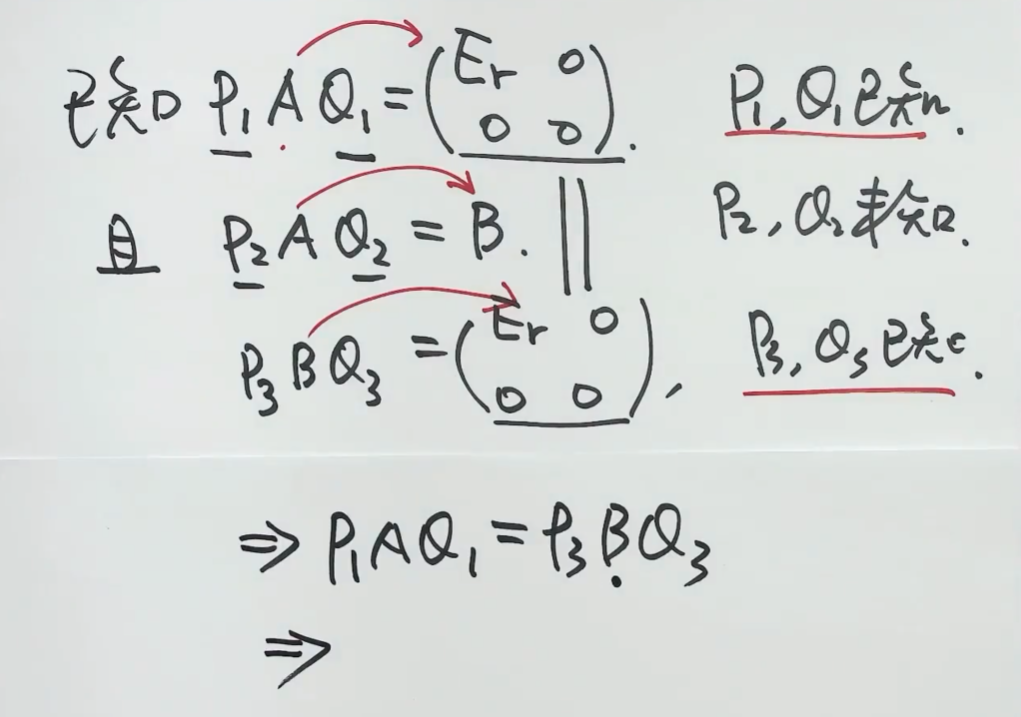 已知 P₁AQ₁ = (Er 0
0 0). P₁, Q₁已知.
且 P₂AQ₂ = B. || P₂, Q₂未知.
P₃BQ₃ = (Er 0
0 0), P₃, Q₃已知.
⇒ P₁AQ₁ = P₃BQ₃
⇒